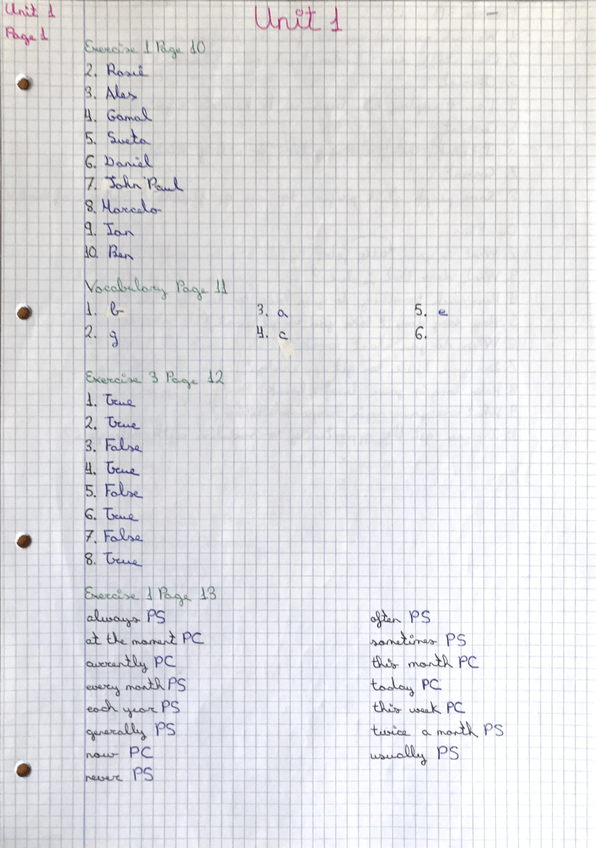 Unit 1
Page 1
Unit 1
Exercise 1 Page 10
2. Rosie
3. Alex
4. Gamal
5. Sveta
6. Daniel
7. John Paul
8. Marcelo
9. Ian
10. Ben
Vocabulary Page 11
1. b 3. a 5. e
2. g 4. c 6.
Exercise 3 Page 12
1. True
2. True
3. False
4. True
5. False
6. True
7. False
8. True
Exercise 1 Page 13
always PS often PS
at the moment PC sometimes PS
currently PC this month PC
every month PS today PC
each year PS this week PC
generally PS twice a month PS
now PC usually PS
never PS